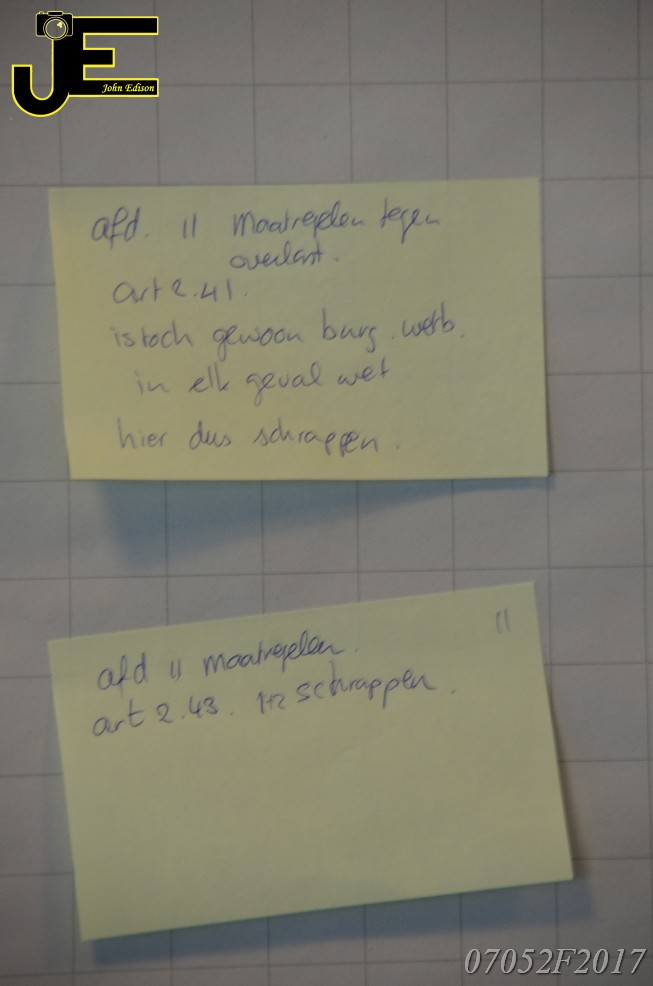 JE
John Edison
afd. 11 Maatregelen tegen
overlast.
art 2.41.
is toch gewoon burg. wetb.
in elk geval wet
hier dus schrappen.
11
afd 11 maatregelen.
art 2.43. 1+2 schrappen.
07052F2017